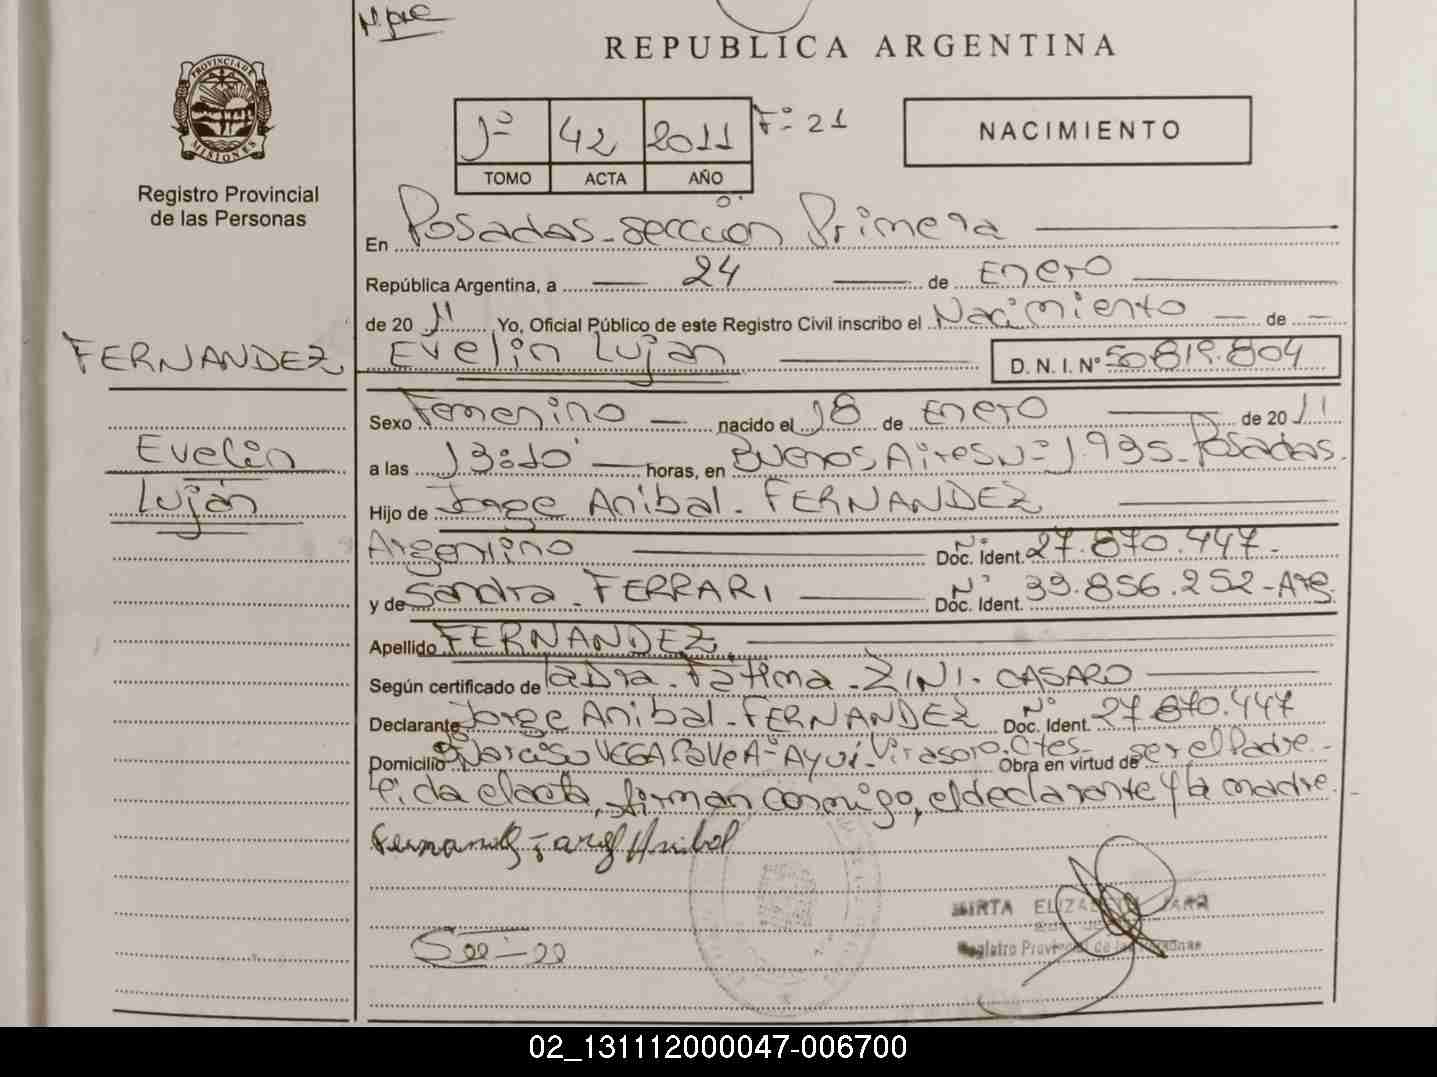 REPUBLICA ARGENTINA
PROVINCIA DE MISIONES
Registro Provincial
de las Personas
1º 42 2011 Fº 21
TOMO ACTA AÑO
NACIMIENTO
En Posadas-sección Primera
República Argentina, a 24 de Enero
de 2011 Yo, Oficial Público de este Registro Civil inscribo el Nacimiento de
FERNANDEZ
Evelin Luján
D. N. I. Nº 50.819.804
Evelin
Luján
Sexo Femenino nacido el 18 de Enero de 2011
a las 13:10 horas, en Buenos Aires Nº 1.935-Posadas.
Hijo de Jorge Anibal-FERNANDEZ
Argentino Doc. Ident. Nº 27.870.447-
y de Sandra-FERRARI Doc. Ident. Nº 39.856.252-Arg.
Apellido FERNANDEZ.
Según certificado de la Dra-Fátima-ZINI-CASARO
Declarante Jorge Anibal-FERNANDEZ Doc. Ident. Nº 27.870.447
Domicilio Bº Narciso VEGA Ayuí-Virasoro-Ctes- Obra en virtud de ser el Padre-
el acta, firman conmigo, el declarante y la madre.
Fernandez Jorge Anibal
MIRTA ELIZABETH JARA
Registro Provincial de las Personas
02_131112000047-006700